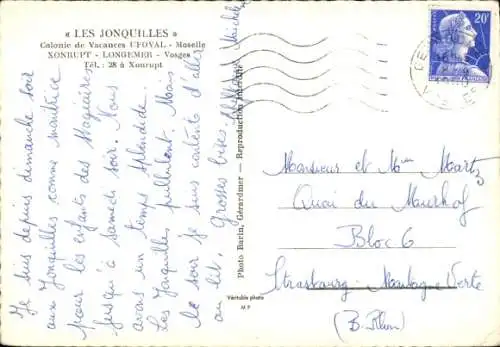 « LES JONQUILLES »
Colonie de Vacances UFOVAL - Moselle
XONRUPT - LONGEMER - Vosges
Tél. : 28 à Xonrupt
Je suis depuis dimanche soir
aux Jonquilles comme monitrice
pour les enfants des stagiaires
jusqu'à samedi soir. Nous
avons un temps splendide.
Les Jonquilles pullulent. Mais
le soir je suis contente d'aller
au lit. Grosses bises
Michèle
Photo Barin, Gérardmer — Reproduction interdite
Véritable photo
M P
20F
Monsieur et Mme Martz
Quai du Murhof
Bloc 6
Strasbourg - Montagne Verte
(B. Rhin)